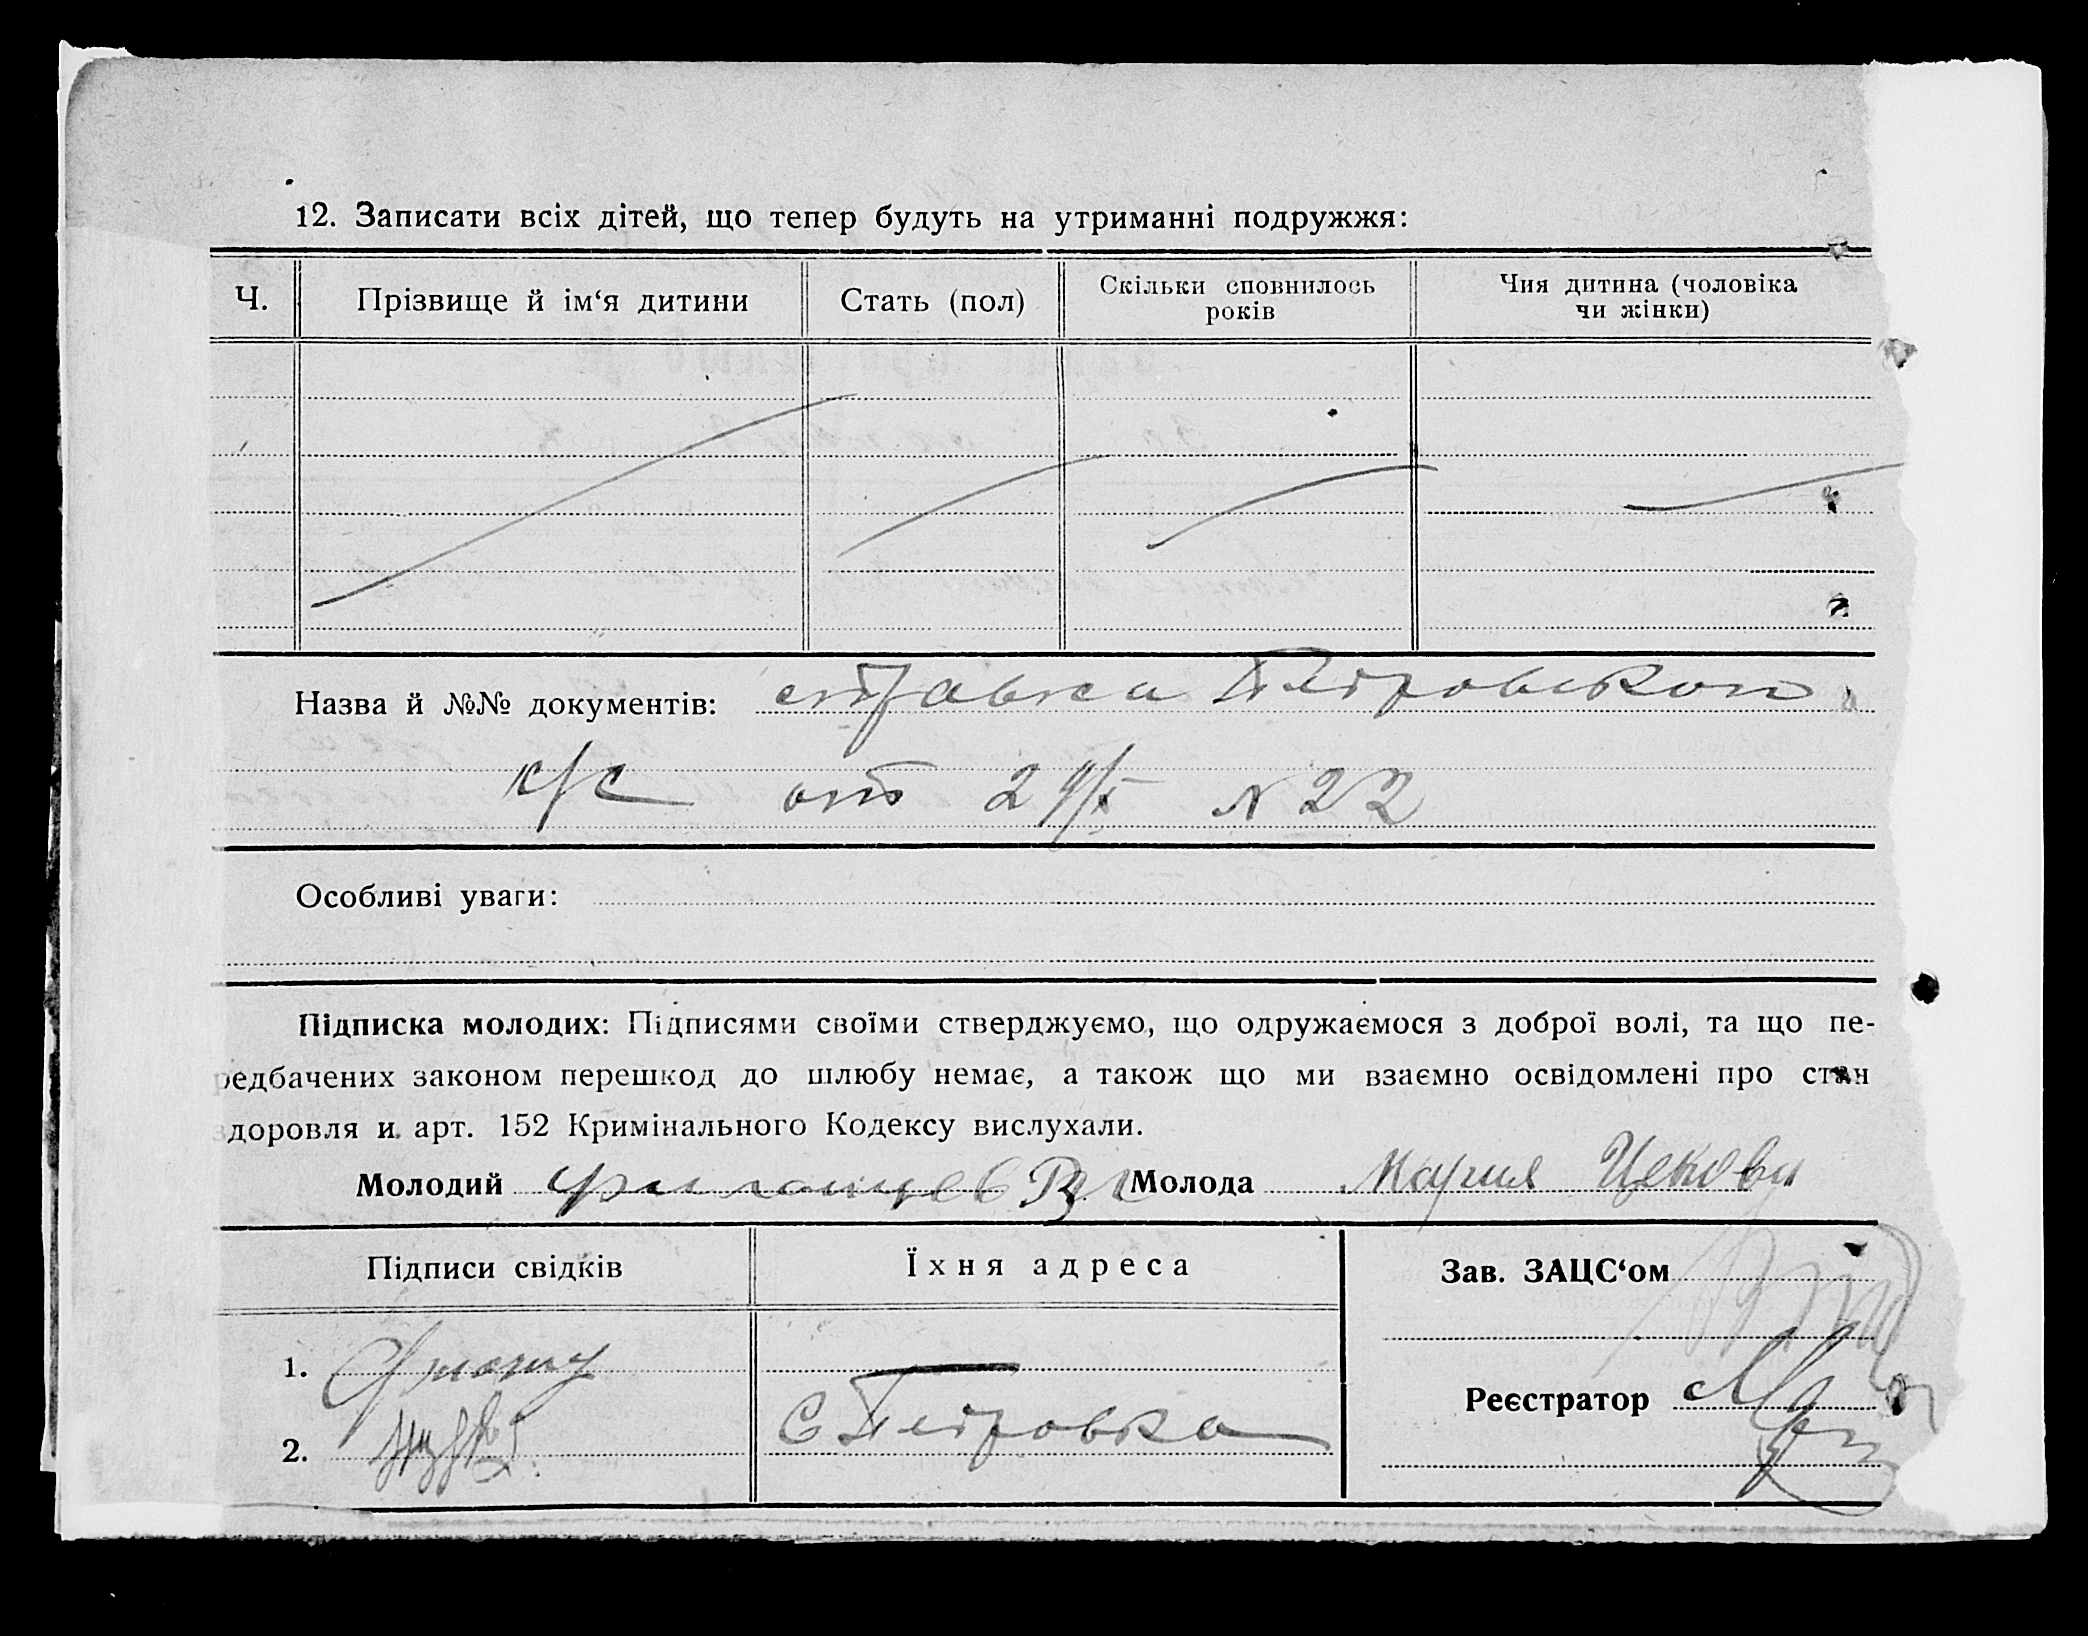 12. Записати всіх дітей, що тепер будуть на утриманні подружжя:
Ч. Прізвище й ім‘я дитини Стать (пол) Скільки сповнилось років Чия дитина (чоловіка чи жінки)
Назва й №№ документів: справка Петровского
с/с от 29/X N 22
Особливі уваги:
Підписка молодих: Підписями своїми стверджуємо, що одружаємося з доброї волі, та що пе-
редбачених законом перешкод до шлюбу немає, а також що ми взаємно освідомлені про стан
здоровля и арт. 152 Кримінального Кодексу вислухали.
Молодий Молода Мария Цекова
Підписи свідків Їхня адреса Зав. ЗАЦС‘ом
1.
Реєстратор
2. С Петровка